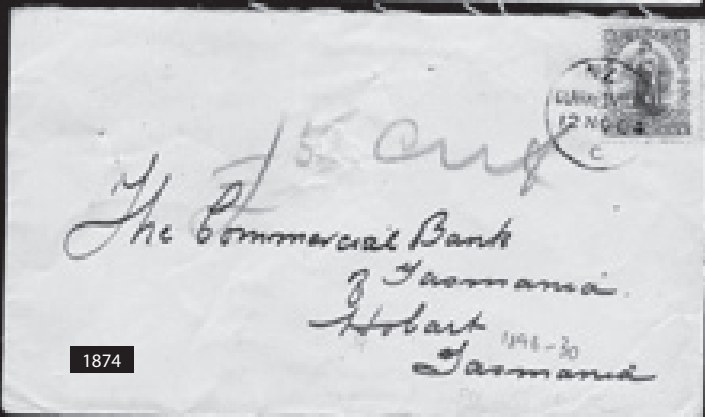 NZ
12 NO 04
C
The Commercial Bank
of Tasmania.
Hobart
Tasmania
1874